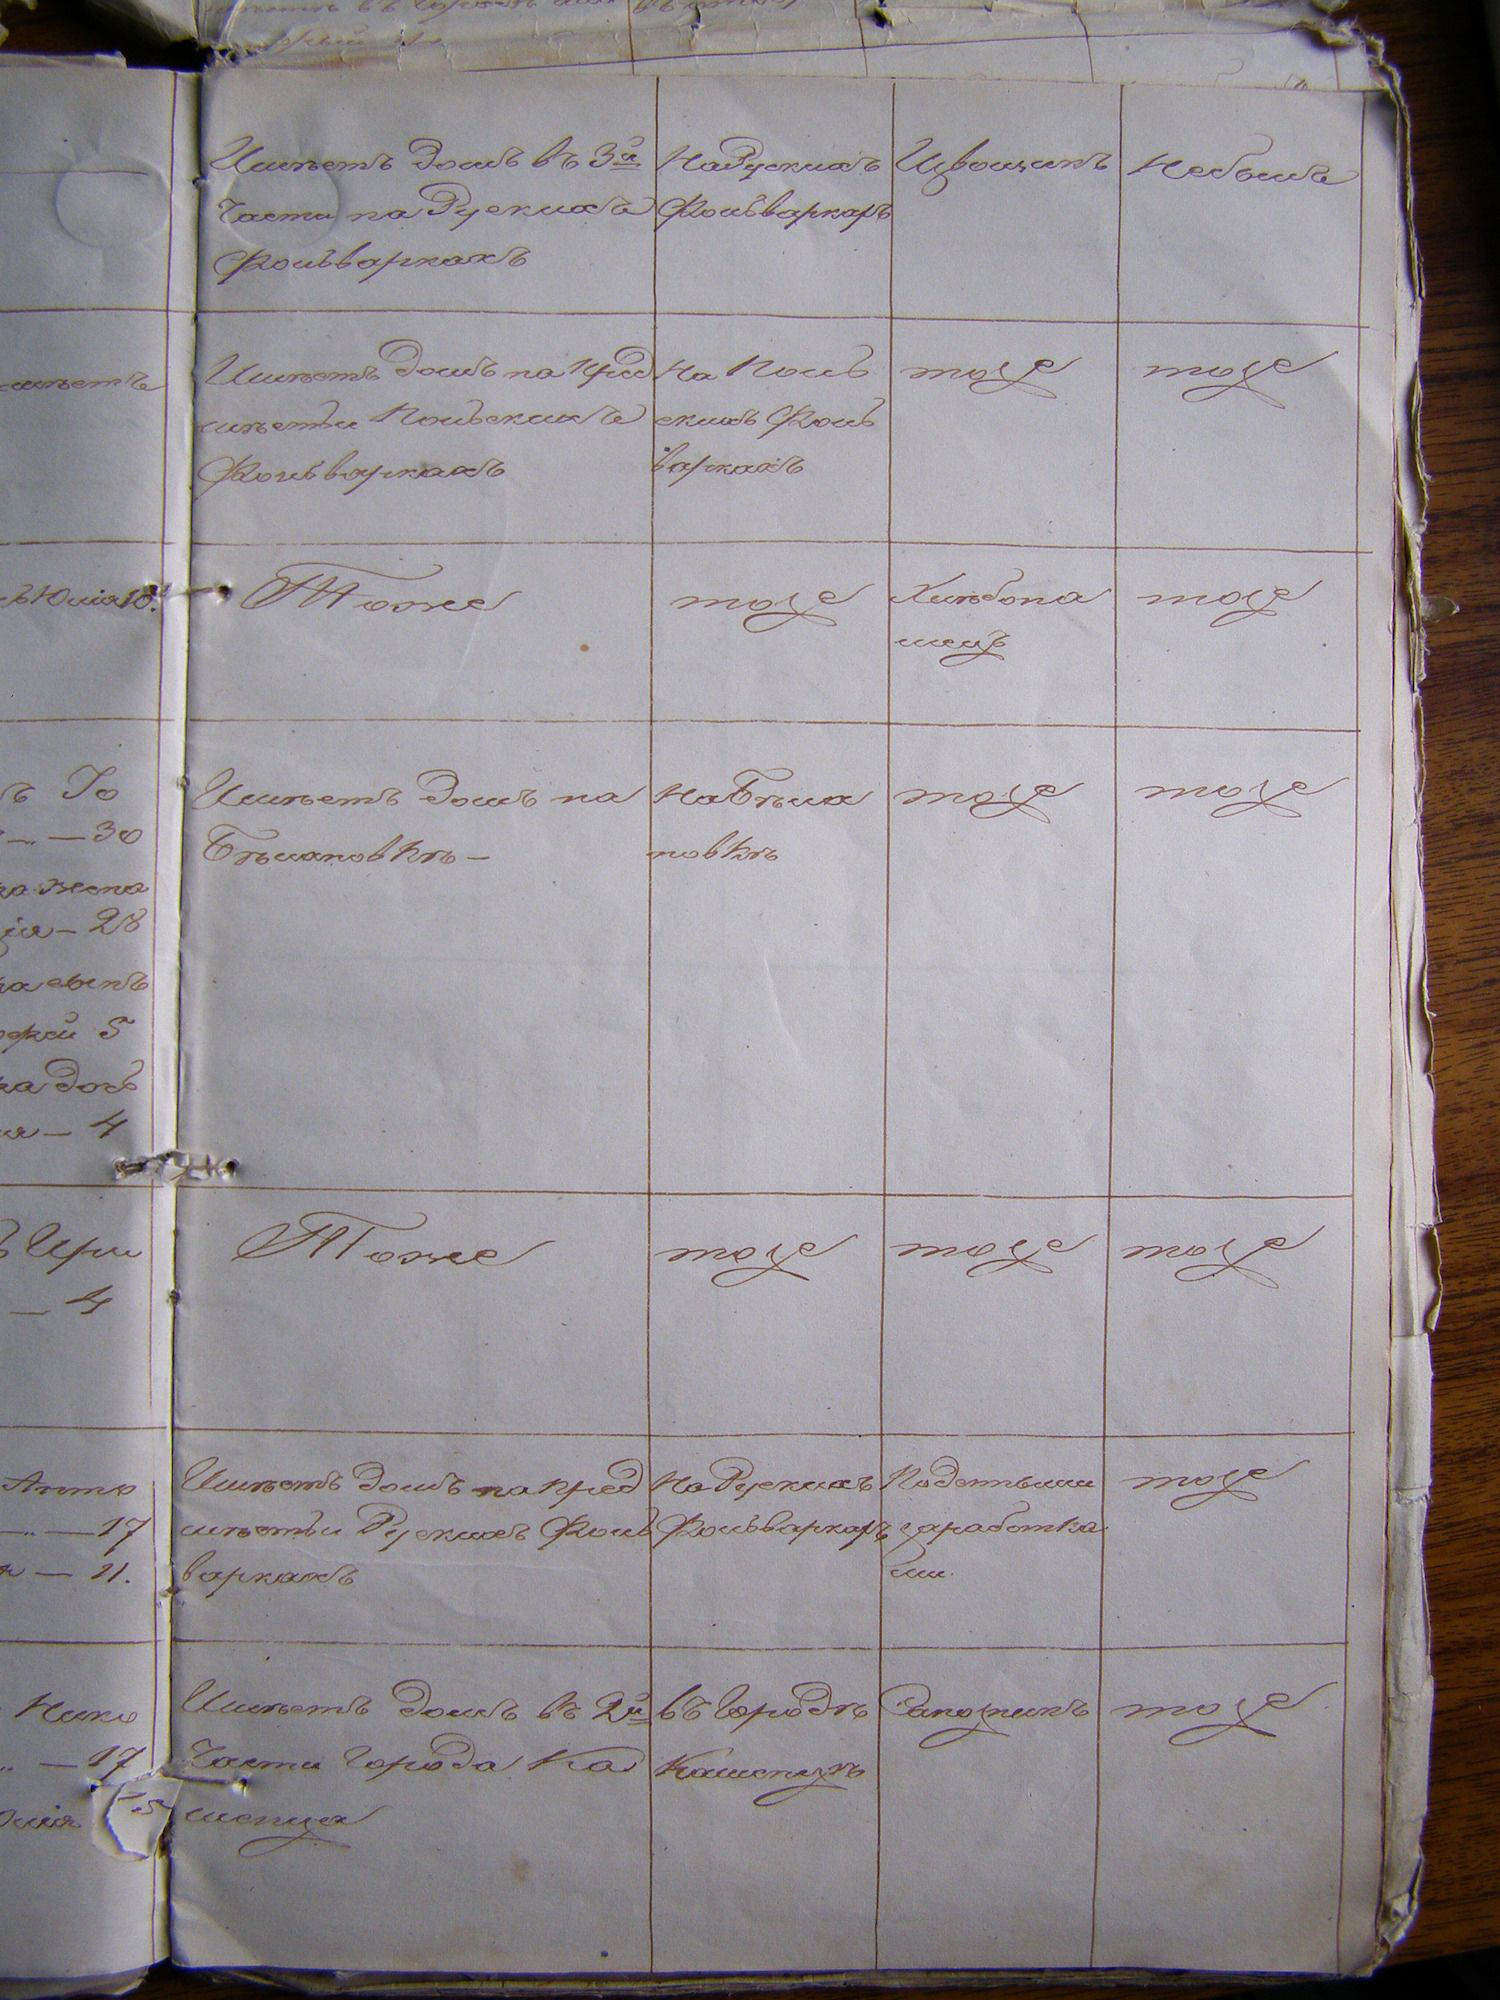 Имѣетъ Домъ въ 3й
Части на Рускихъ
Фольваркахъ
На Рускихъ
Фольваркахъ
Извощикъ
Небылъ
Имѣетъ Домъ на пред
мѣстьи Польскихъ
Фольваркахъ
На Поль
скихъ Фоль
варкахъ
тоже
тоже
Юлія 10.
Тоже
тоже
Хлѣбопа
шецъ
тоже
30
Имѣетъ Домъ на
Бѣлановкѣ —
На Бѣла
новкѣ
тоже
тоже
жена
— 28
сынъ
5
дочь
— 4
Тоже
тоже
тоже
тоже
— 4
Анто
— 17
— 11.
Имѣетъ Домъ на пред
мѣстьи Рускихъ Фоль
варкахъ
На Рускихъ
Фольваркахъ
Поденными
заработка
ми.
тоже
Нико
— 17
Имѣетъ Домъ въ 2й
Части Города Ка
менца
въ Городѣ
Каменцѣ
Сапожникъ
тоже